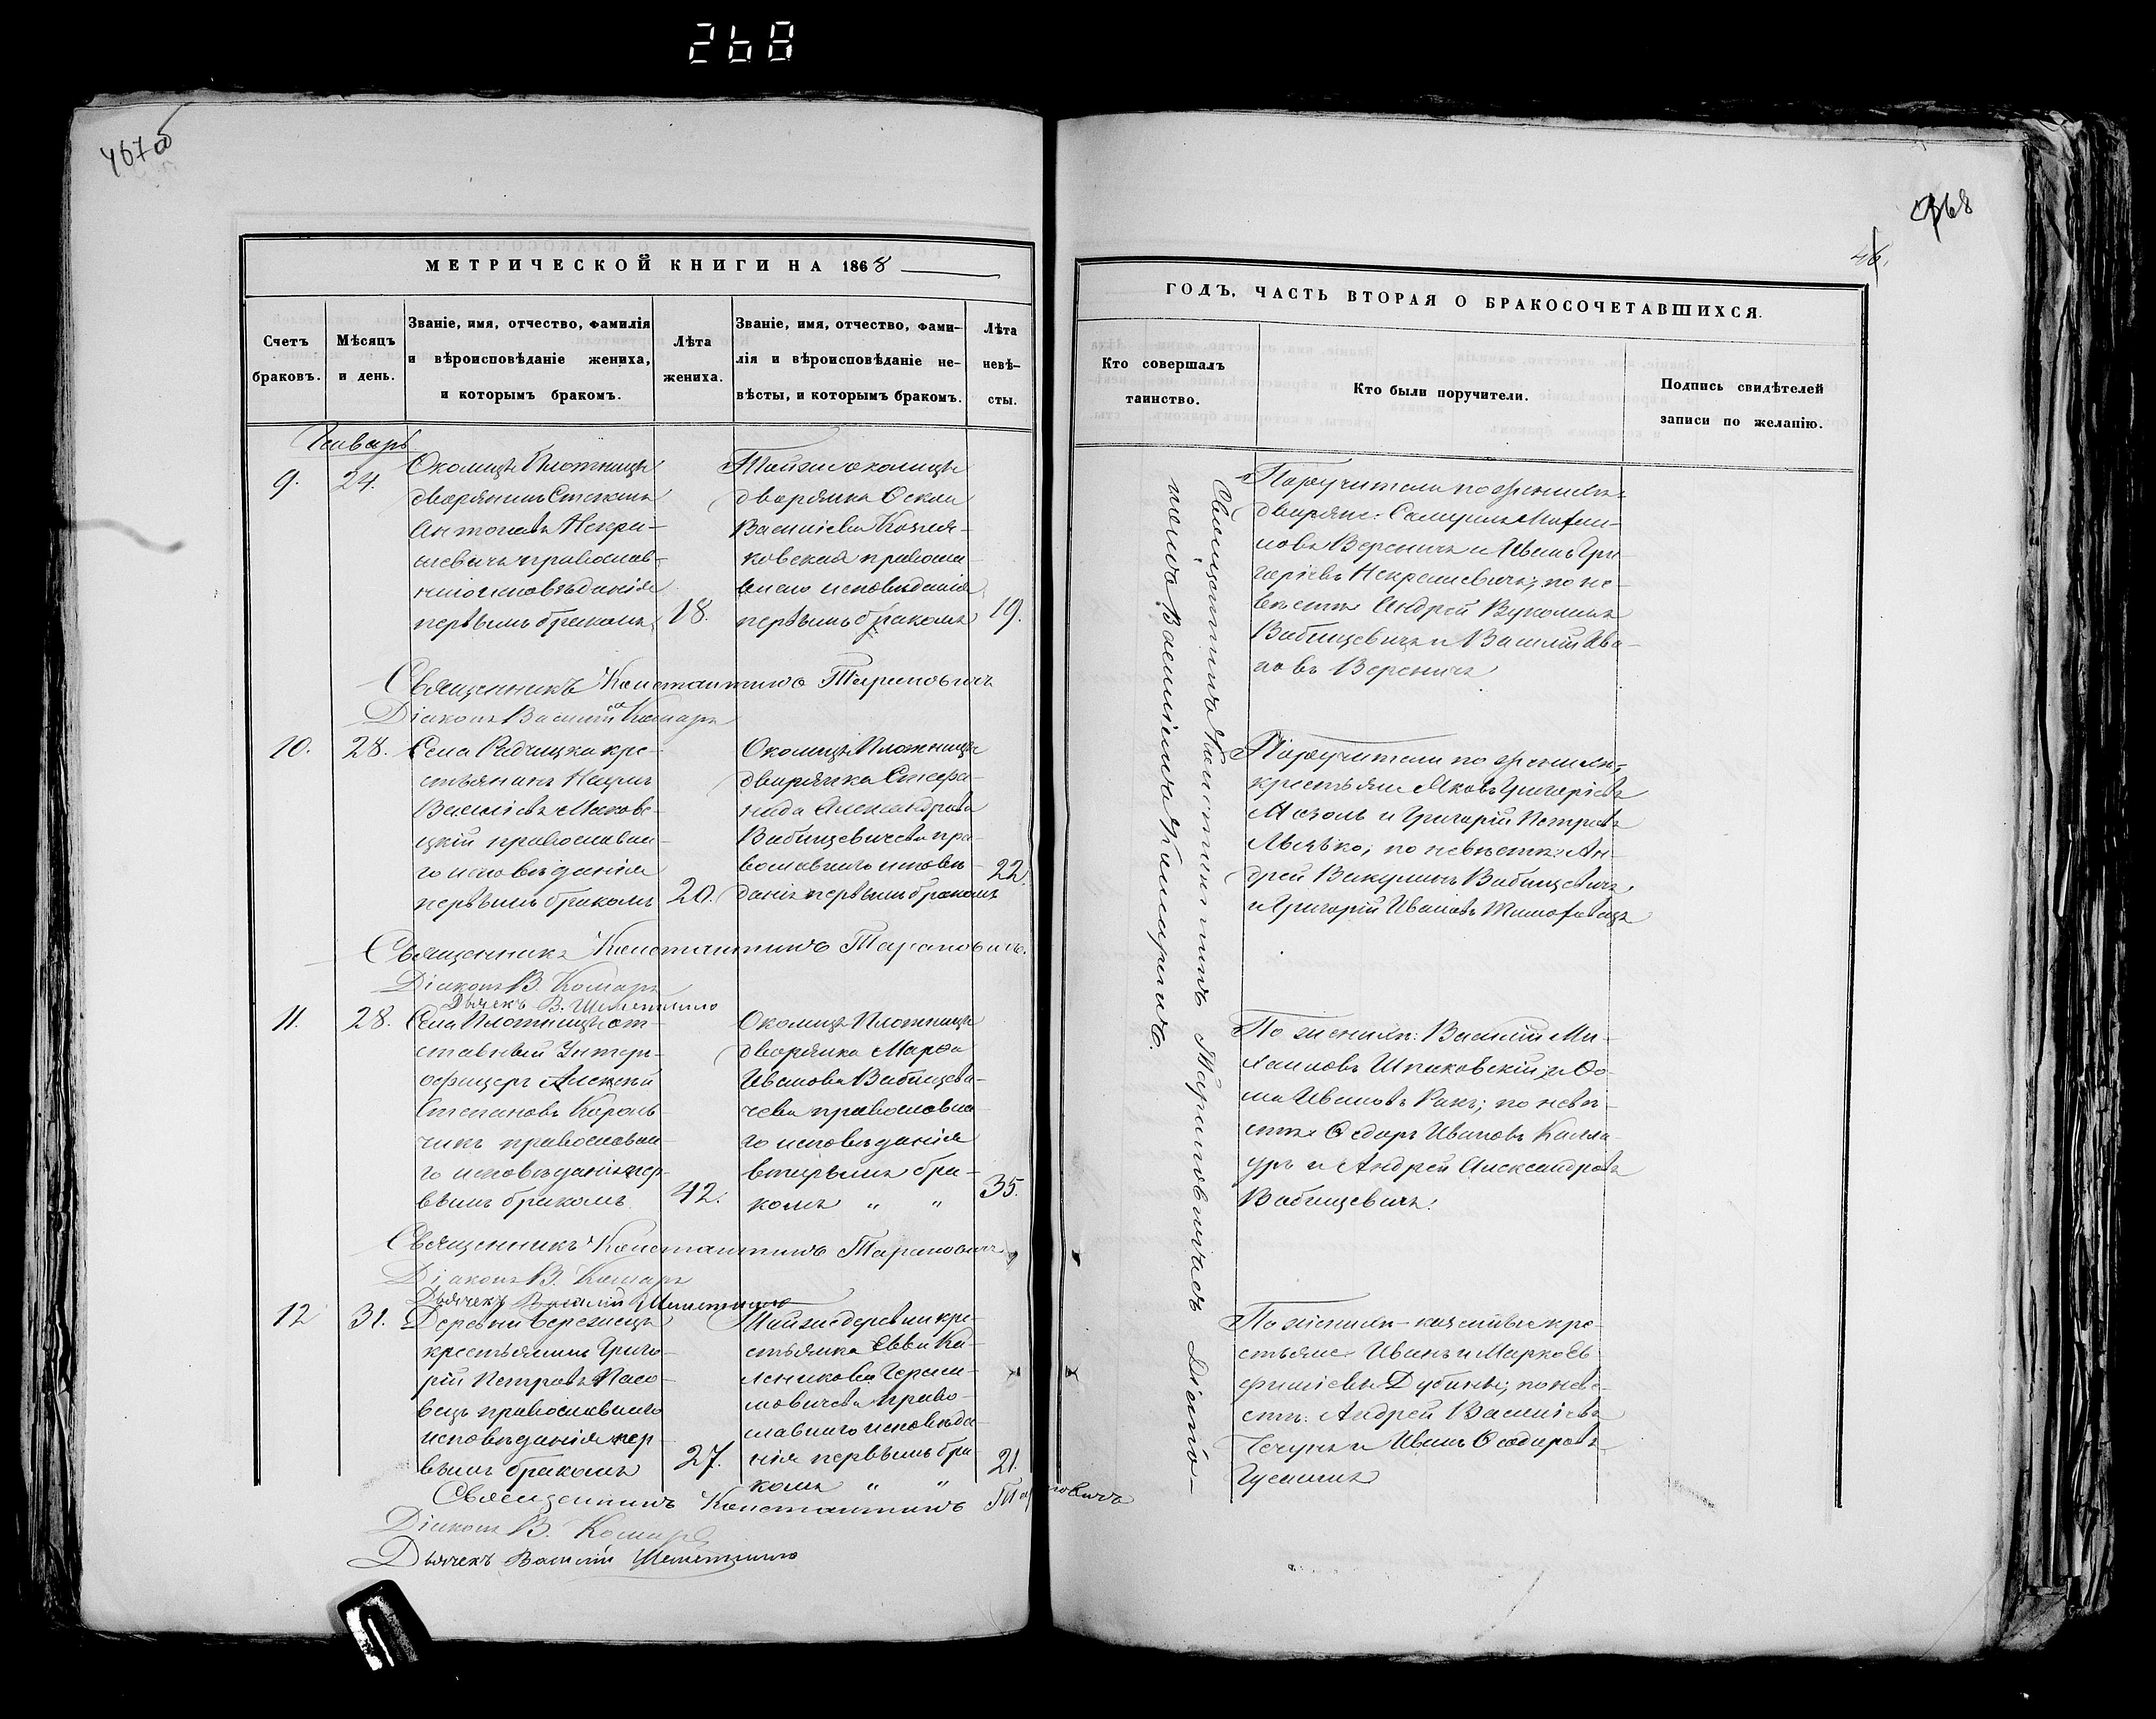 268
467об
468
46.
МЕТРИЧЕСКОЙ КНИГИ НА 1868
Счетъ браковъ.
Мѣсяцъ и день.
Званіе, имя, отчество, фамилія
и вѣроисповѣданіе жениха,
и которымъ бракомъ.
Лѣта жениха.
Званіе, имя, отчество, фами-
лія и вѣроисповѣданіе не-
вѣсты, и которымъ бракомъ.
Лѣта невѣ-
сты.
Январь
9.
24.
Околицы Плотницы
дворянинъ Стефанъ
Антоновъ Некра-
шевичъ православ-
наго исповѣданія
первымъ бракомъ
18.
Той же околицы
дворянка Фекла
Василіева
ковская правосла
внаго исповѣданія
первымъ бракомъ
19.
Священникъ Константинъ Тарановичъ
Діаконъ Василій Комаръ
10.
28.
Села Радчицка кре-
стьянинъ Наумъ
Василіевъ Маковe-
цкій православна-
го исповѣданія
первымъ бракомъ
20.
Околицы Плотницы
дворянка Стефа-
нида Александрова
Вабищевичева пра-
вославнаго исповѣ-
данія первымъ бракомъ
22.
Священникъ Константинъ Тарановичъ.
Діаконъ В. Комаръ
Дьячекъ В. Шеметилло
11.
28.
Села Плотницы от-
ставный Унтеръ-
офицеръ Алексѣй
Степановъ Король-
чикъ православна-
го исповѣданія пер-
вымъ бракомъ
42.
Околицы Плотницы
дворянка Марѳа
Иванова Вабищеви-
чева православна-
го исповѣданія
вторымъ бра-
комъ " "
35.
Священникъ Константинъ Тарановичъ
Діаконъ В. Комаръ
Дьячекъ Василій Шеметилло
12
31.
Деревни Бережцы
крестьянинъ Григо-
рій Петровъ
вецъ православнаго
исповѣданія пер-
вымъ бракомъ
27.
Той же деревни кре-
стьянка Евва Ка-
леникова Гераси-
мовичева право-
славнаго исповѣда-
нія первымъ бра-
комъ " "
21.
Священникъ Константинъ Тарановичъ
Діаконъ В. Комаръ
Дьячекъ Василій Шеметилло
ГОДЪ, ЧАСТЬ ВТОРАЯ О БРАКОСОЧЕТАВШИХСЯ.
Кто совершалъ таинство.
Кто были поручители.
Подпись свидѣтелей
записи по желанію.
Священникъ Константинъ Тарановичъ съ Діако-
номъ Василіемъ Комаремъ.
Поручители по женихѣ
дворяне: Самуилъ
новъ Вереничъ и Иванъ Гри
горіевъ Некрашевичъ; по не-
вѣстѣ Андрей Вукoлинъ
Вабищевичъ и Василій Ива-
новъ Вереничъ
Поручители по женихѣ
крестьяне Яковъ Григоріевъ
Мозоль и Григорій Петровъ
по невѣстѣ: Ан-
дрей Викулинъ Вабищевичъ
и Григорій Ивановъ
По женихѣ: Василій Ми-
хаиловъ Шпаковскій и Ѳо-
ма Ивановъ Ракъ; по невѣ-
стѣ Ѳедоръ Ивановъ Калла-
уръ и Андрей Александровъ
Вабищевичъ.
По женихѣ - казенные кре-
стьяне Иванъ и Марко Ев-
фиміевы Дубины; по неве-
стѣ: Андрей Василіевъ
Чечунъ и Иванъ Ѳеодоровъ